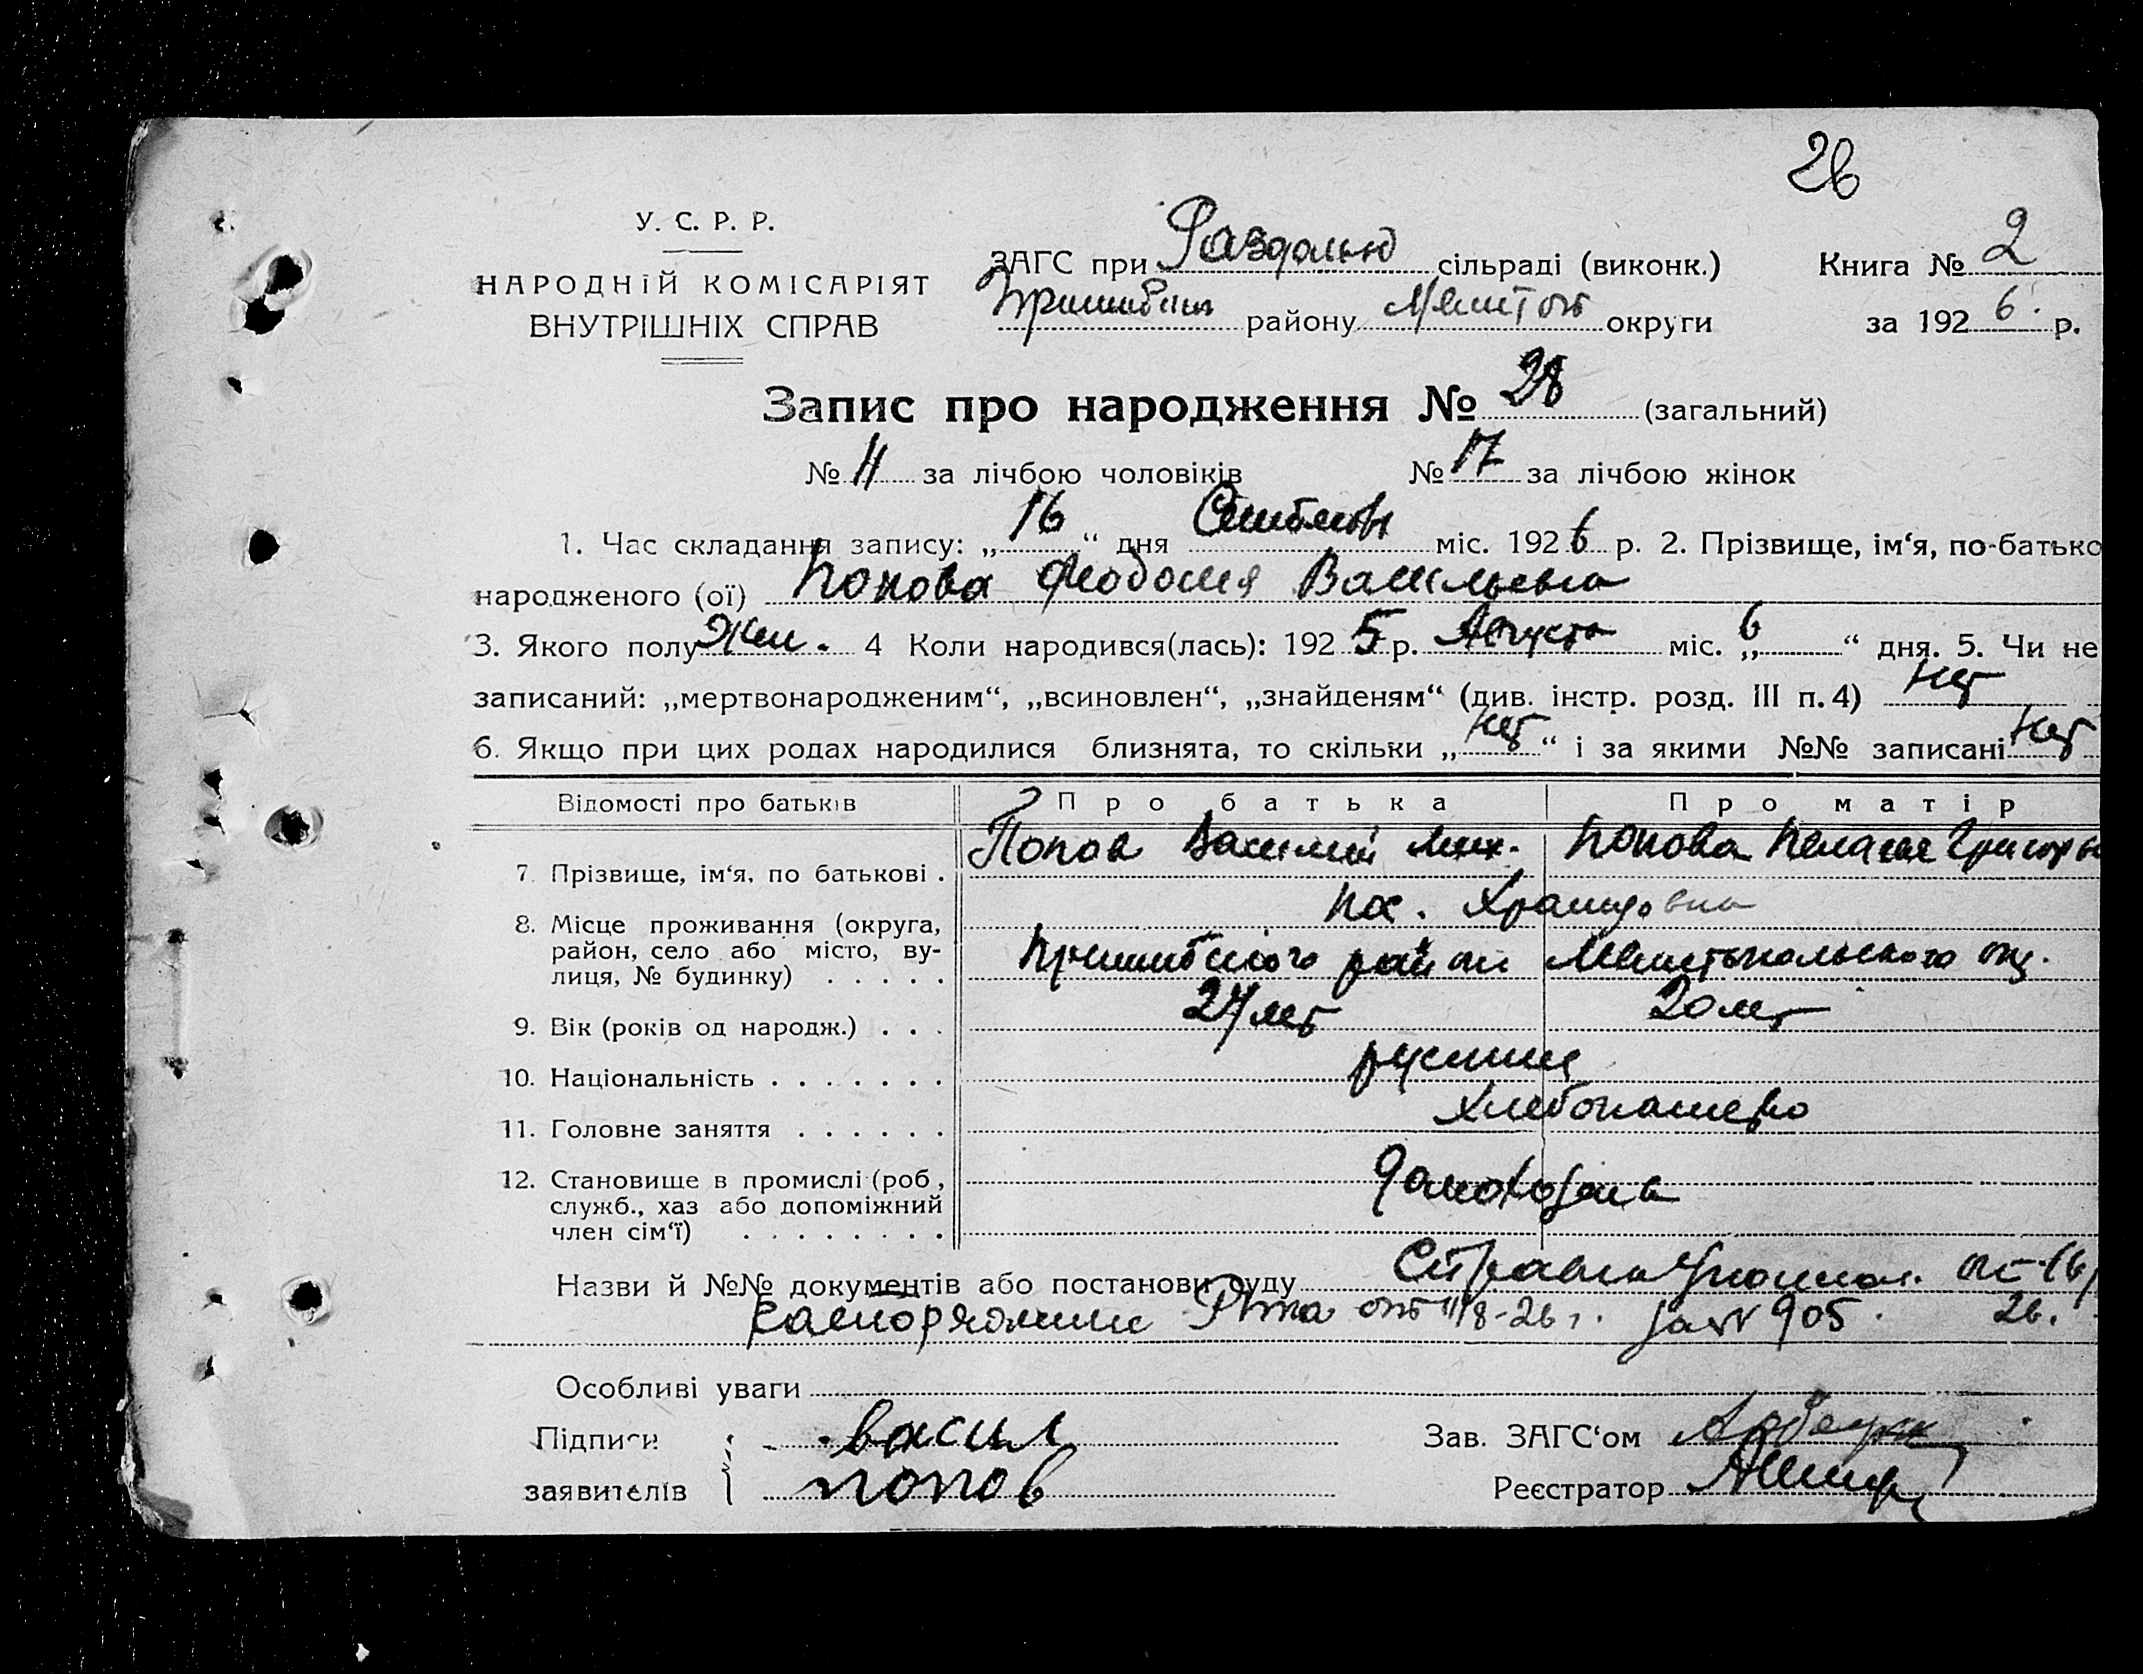 26
У. С. Р. Р.
НАРОДНІЙ КОМІСАРІЯТ
ВНУТРІШНІХ СПРАВ
ЗАГС при сільраді (виконк.)
району округи
Книга № 2
за 1926 р.
Запис про народження № 28 (загальний)
№ 11 за лічбою чоловіків № 17 за лічбою жінок
1. Час складання запису: „ 16 “ дня міс. 1926 р. 2. Прізвище, ім‘я, по-батько
народженого (ої) Попова Феодосия Васильевна
3. Якого полу Жен. 4 Коли народився(лась): 1925 р. Августа міс. „ 6 “ дня. 5. Чи не
записаний: „мертвонародженим“, „всиновлен“, „знайденям“ (див. інстр. розд. III п. 4) нет
6. Якщо при цих родах народилися близнята, то скільки „ нет “ і за якими №№ записані нет
Відомості про батьків Про батька Про матір
7. Прізвище, ім‘я, по батькові . Попов Василий Мих. Попова Пелагея Григорьев
8. Місце проживання (округа,
район, село або місто, ву-
лиця, № будинку) . . . . . Пришибского района Мелитопольского окр.
9. Вік (років од народж.) . . . 24 лет 20 лет
10. Національність . . . . . . . русские
11. Головне заняття . . . . . . хлебопашество
12. Становище в промислі (роб,
служб., хаз або допоміжний
член сім‘ї) . . . . . . . . домохозяева
Назви й №№ документів або постанови суду Справка от 16/
распоряжение РИКа от 11/8-26 г. за № 905. 26.
Особливі уваги
Підписи васил Зав. ЗАГС‘ом
заявителів попов Реєстратор